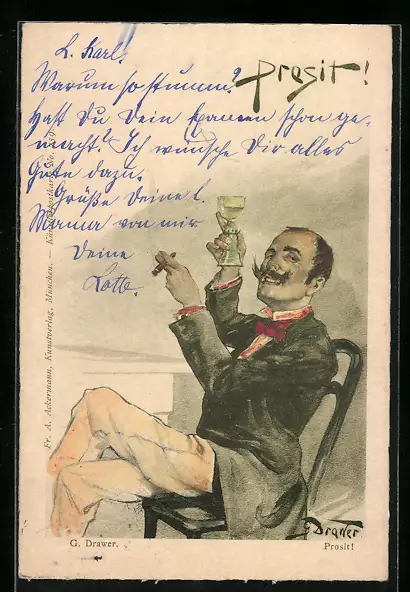 L. Karl!
Prosit!
Warum so stumm?
Hast Du Dein Examen schon ge-
macht? Ich wünsche Dir alles
Gute dazu.
Grüße Deine l.
Mama von mir
Deine
Lotte.
Fr. A. Ackermann, Kunstverlag, München. — Künstlerpostkarte No.
G Drawer
G. Drawer.
Prosit!